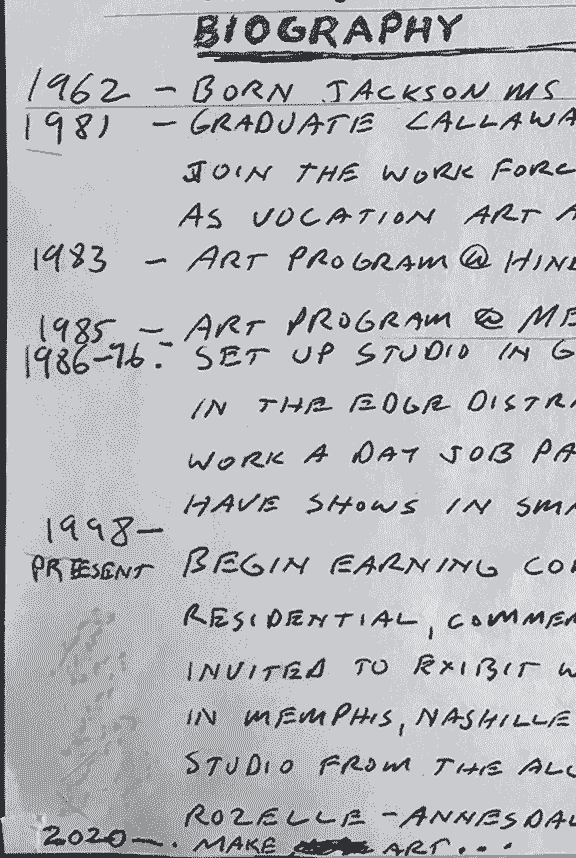 BIOGRAPHY
1962 - BORN JACKSON MS
1981 - GRADUATE CALLAWA
JOIN THE WORK FORC
AS VOCATION ART A
1983 - ART PROGRAM @ HIND
1985 - ART PROGRAM @ ME
1986-96. - SET UP STUDIO IN G
IN THE EDGE DISTR
WORK A DAY JOB PA
HAVE SHOWS IN SMA
1998-
PRESENT BEGIN EARNING CO
RESIDENTIAL, COMMER
INVITED TO EXIBIT W
IN MEMPHIS, NASHILLE
STUDIO FROM THE ALL
ROZELLE-ANNESDAL
2020-. MAKE ART...